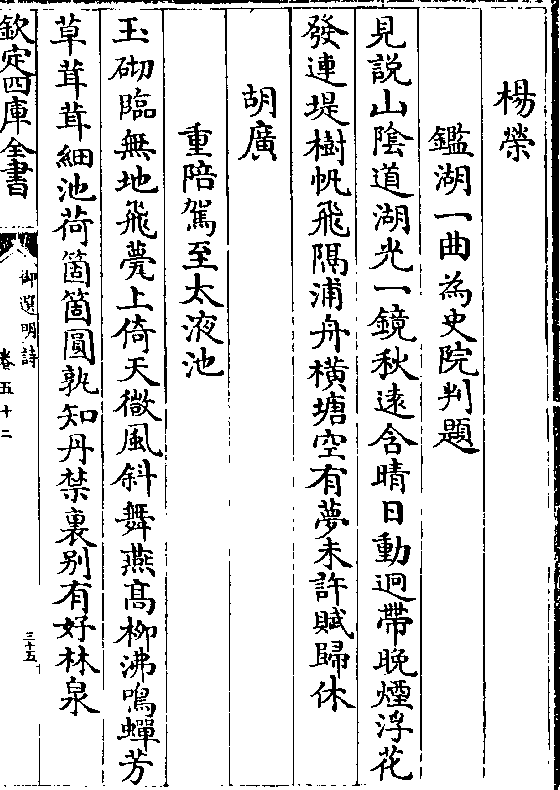 楊榮
鑑湖一曲為史院判題
見說山陰道湖光一鏡秋遠含晴日動迥帶晚煙浮花
發連堤樹帆飛隔浦舟橫塘空有夢未許賦歸休
胡廣
重陪駕至太液池
玉砌臨無地飛甍上倚天微風斜舞燕髙柳沸鳴蟬芳
草茸茸細池荷箇箇圓孰知丹禁裏别有好林泉
欽定四庫全書
御選明詩
卷五十二
三十五